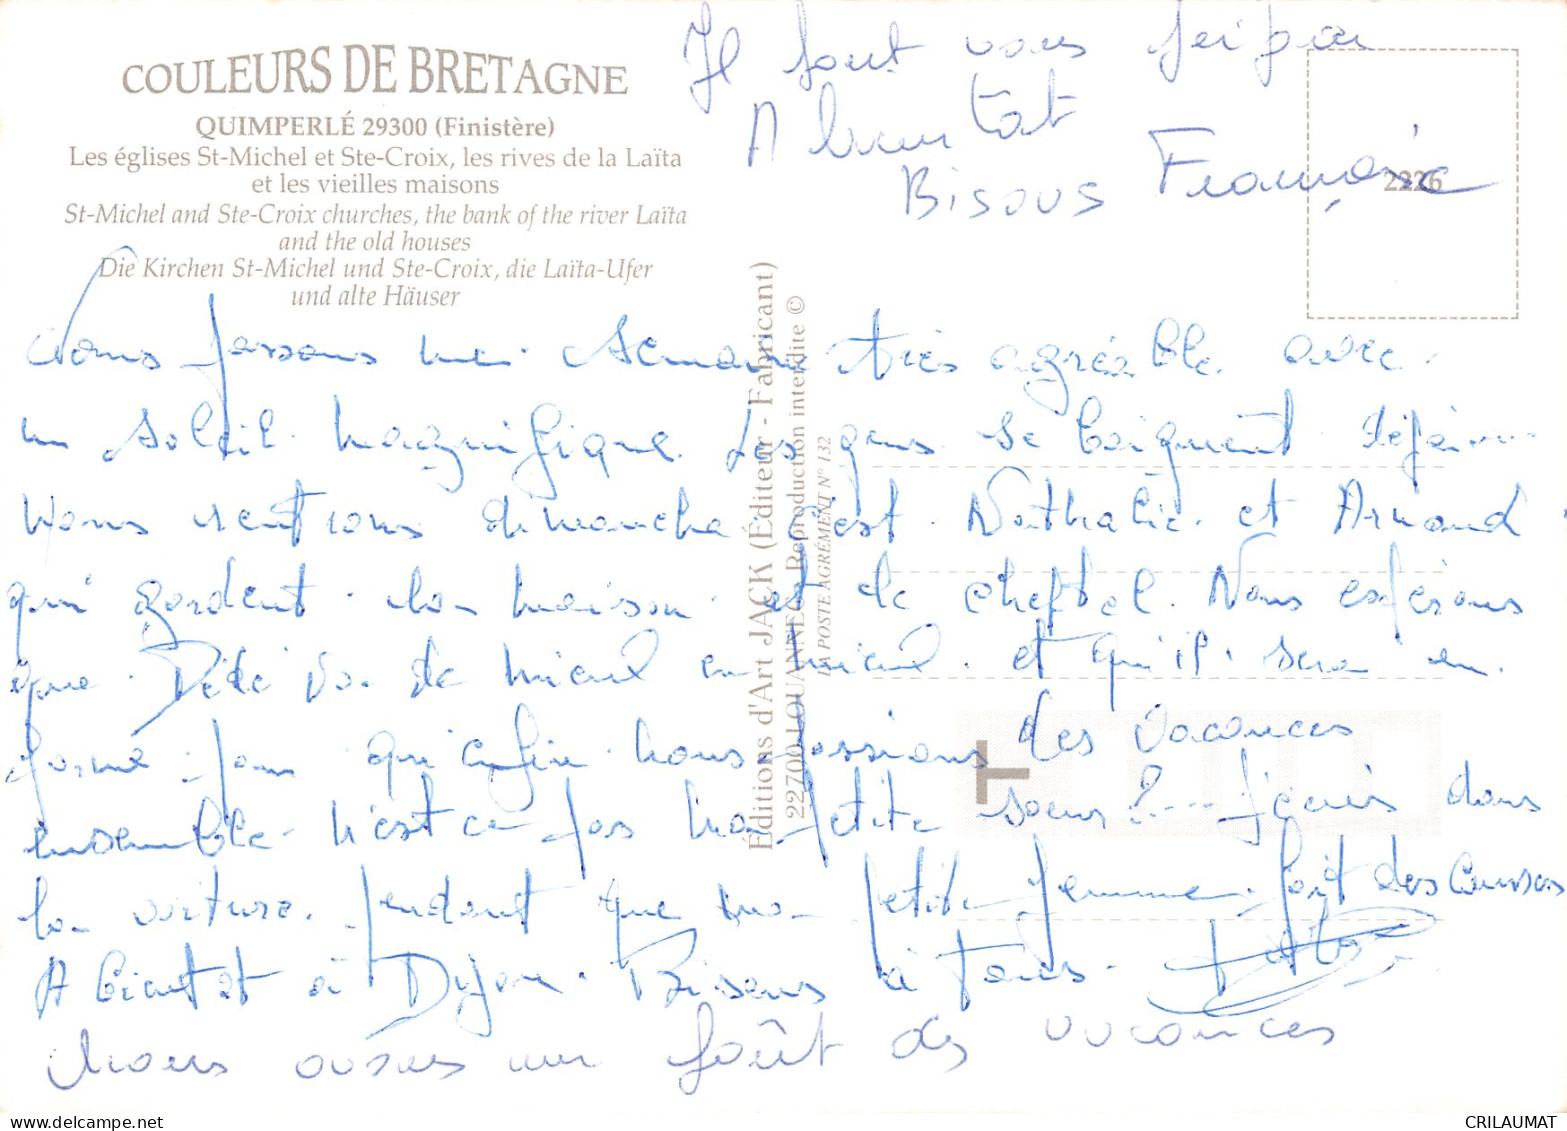 COULEURS DE BRETAGNE
QUIMPERLÉ 29300 (Finistère)
Les églises St-Michel et Ste-Croix, les rives de la Laïta
et les vieilles maisons
St-Michel and Ste-Croix churches, the bank of the river Laïta
and the old houses
Die Kirchen St-Michel und Ste-Croix, die Laïta-Ufer
und alte Häuser
2226
Éditions d'Art JACK (Éditeur - Fabricant)
22700 LOUANNEC Reproduction interdite ©
LA POSTE AGRÉMENT N° 132
Nous passons une semaine très agréable avec
un soleil magnifique. Les gens se baignent déjà...
Nous rentrons dimanche c'est Nathalie et Arnaud
qui gardent la maison et le cheptel. Nous espérons
que Dédé va de mieux en mieux et qu'il sera en
forme pour qu'enfin nous passions des vacances
ensemble n'est ce pas ma petite soeur ?... j'écris dans
la voiture pendant que ma petite femme fait des courses
A bientot à Dijon. Bisous à tous.
Nous avons un goût de vacances
Il faut vous
A bientôt
Bisous Françoise
CRILAUMAT